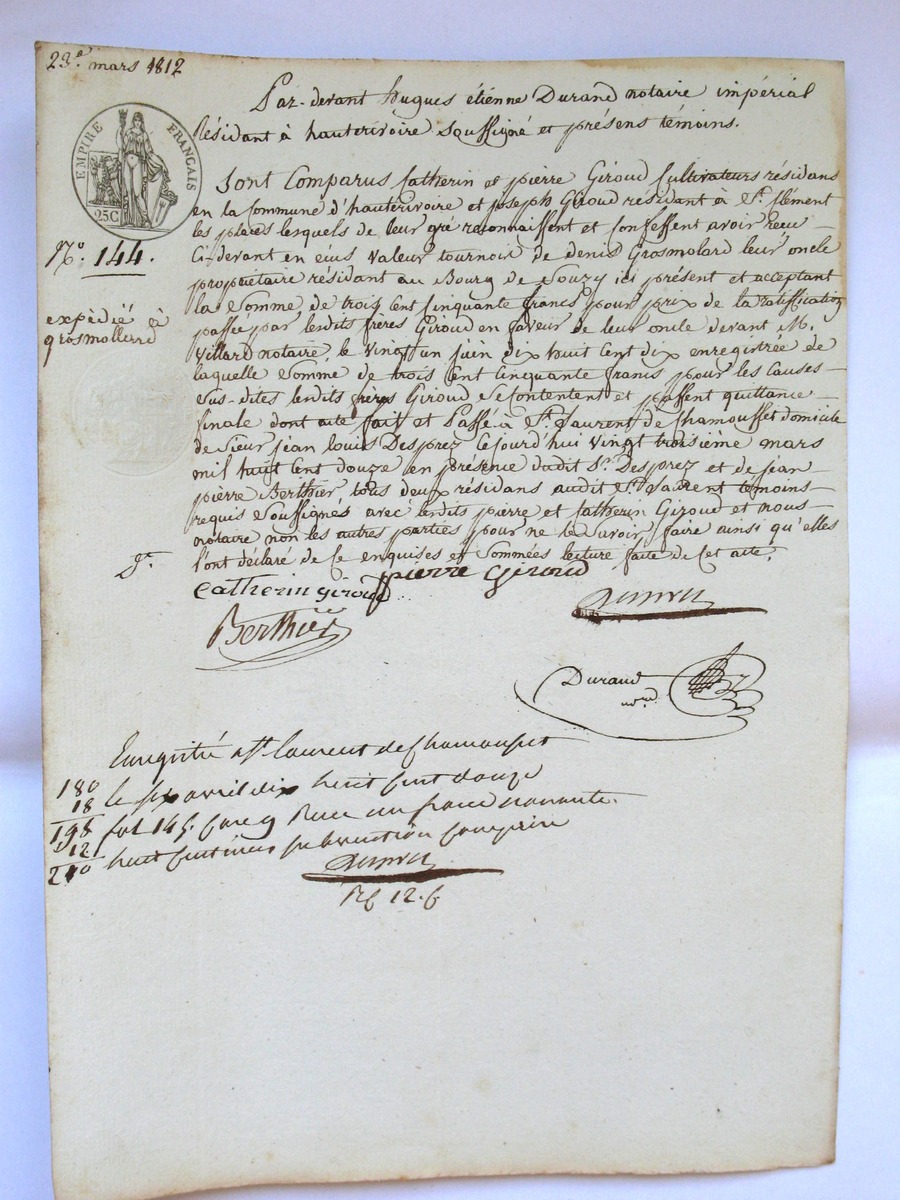 23.e mars 1812
Par-devant hugues étienne Durand notaire impérial
Résidant à hauterivoire soussigné et présens témoins.
EMPIRE FRANÇAIS
25C
Sont Comparus Catherin et pierre Giroud Cultivateurs résidans
en la Commune d'hauterivoire et joseph Giroud résidant à St. Clément
les places lesquels de leur gré reconnaissent et Confessent avoir recu
Ci-devant en éius valeur tournois de denis Grosmolard leur oncle
propriétaire résidant au Bourg de Souzy ici présent et acceptant
la Somme de trois Cent Cinquante francs pour prix de la ratiffication
passée par lesdits frères Giroud en faveur de leur oncle devant M.
Villard notaire, le vingt un juin dix huit Cent dix enregistrée de
laquelle Somme de trois Cent Cinquante francs pour les Causes
Sus-dites lesdits frères Giroud Se Contentent et passent quittance
finale dont acte fait et Passé à St. Laurent de Chamousset domicile
de Sieur jean Louis Desprez Cejourd'hui vingt troisième mars
mil huit Cent douze en présence dudit Sr. Desprez et de jean
pierre Berthier tous deux résidans audit St. Laurent témoins
requis Soussignés avec lesdits pierre et Catherin Giroud et nous
notaire non les autres parties pour ne le Savoir faire ainsi qu'elles
l'ont déclaré de Ce enquises et Sommées lecture faite de Cet acte.
No. 144.
expédié à
grosmollard
Catherin giroud
pierre Giroud
Berthier
Durand
Enregistré a St. laurent de Chamousset
le six avril dix huit Cent douze
fol. 145. Case 9 Recu un franc nonante
huit Centimes subvention Comprise
180
18
198
12
210
12.